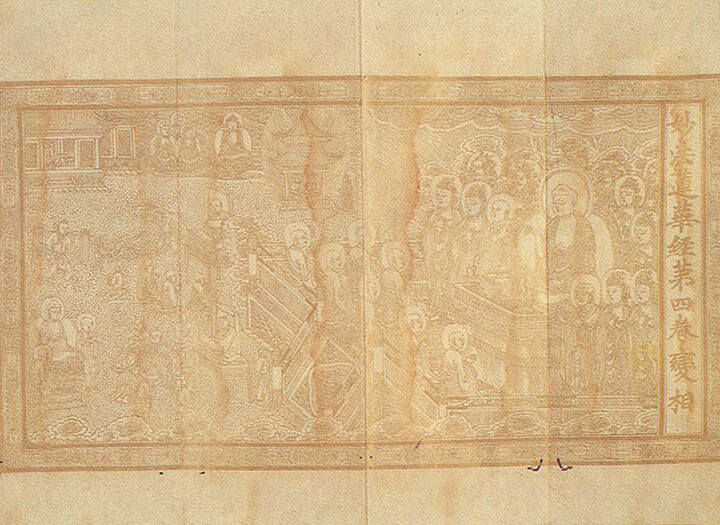 妙法蓮華經第四卷變相